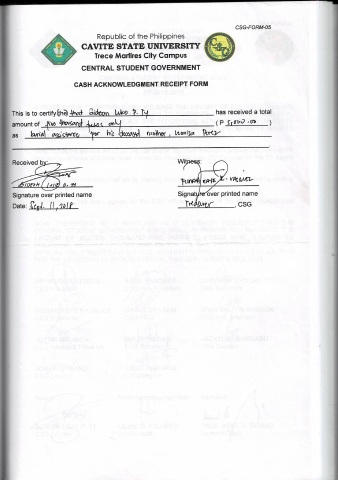 CSG-FORM-05
Republic of the Philippines
CAVITE STATE UNIVERSITY
Trece Martires City Campus
CENTRAL STUDENT GOVERNMENT
CASH ACKNOWLEDGMENT RECEIPT FORM
This is to certify that Gideon Luko D. Ty has received a total
amount of five thousand pesos only (P 5,000.00)
as burial assistance for his deceased mother, Perez
Received by: Witness:
GIDEON LUKO D. TY
Signature over printed name Signature over printed name
Date: Sept. 11, 2018 Treasurer, CSG